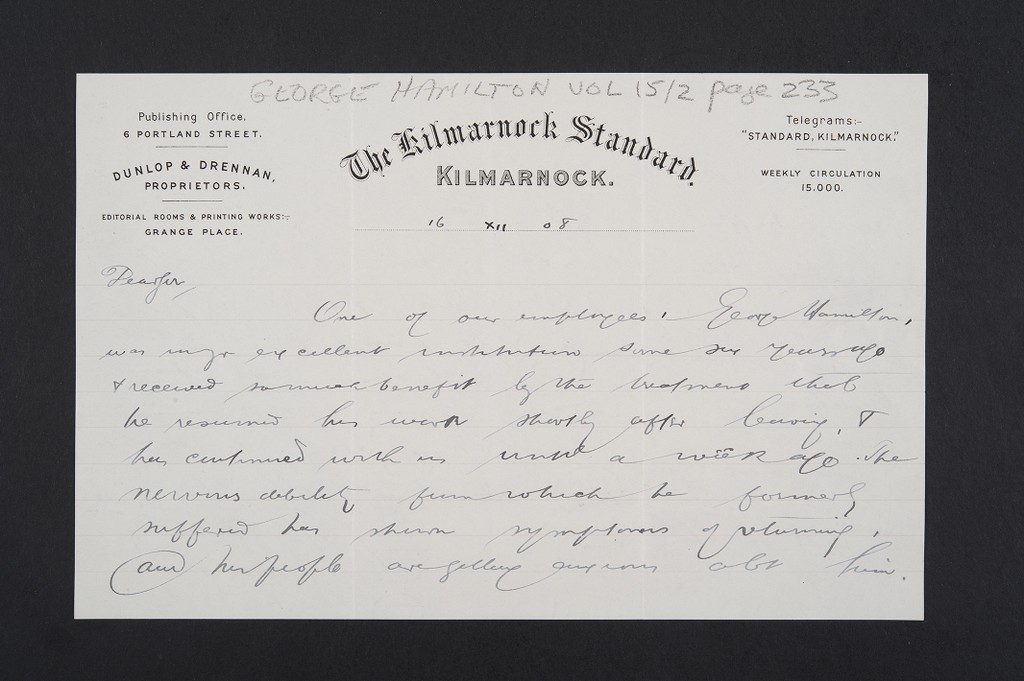 GEORGE HAMILTON VOL 15/2 page 233
Publishing Office,
6 PORTLAND STREET.
DUNLOP & DRENNAN,
PROPRIETORS.
EDITORIAL ROOMS & PRINTING WORKS:-
GRANGE PLACE.
The Kilmarnock Standard,
KILMARNOCK.
Telegrams:-
"STANDARD, KILMARNOCK."
WEEKLY CIRCULATION
15.000.
16 XII 08
Dear Sir,
One of our employees, George Hamilton,
was in yr excellent institution some six years ago
& received so much benefit by the treatment that
he resumed his work shortly after leaving, &
has continued with us until a week ago. The
nervous debility from which he formerly
suffered has shewn symptoms of returning,
and his people are getting anxious abt him.